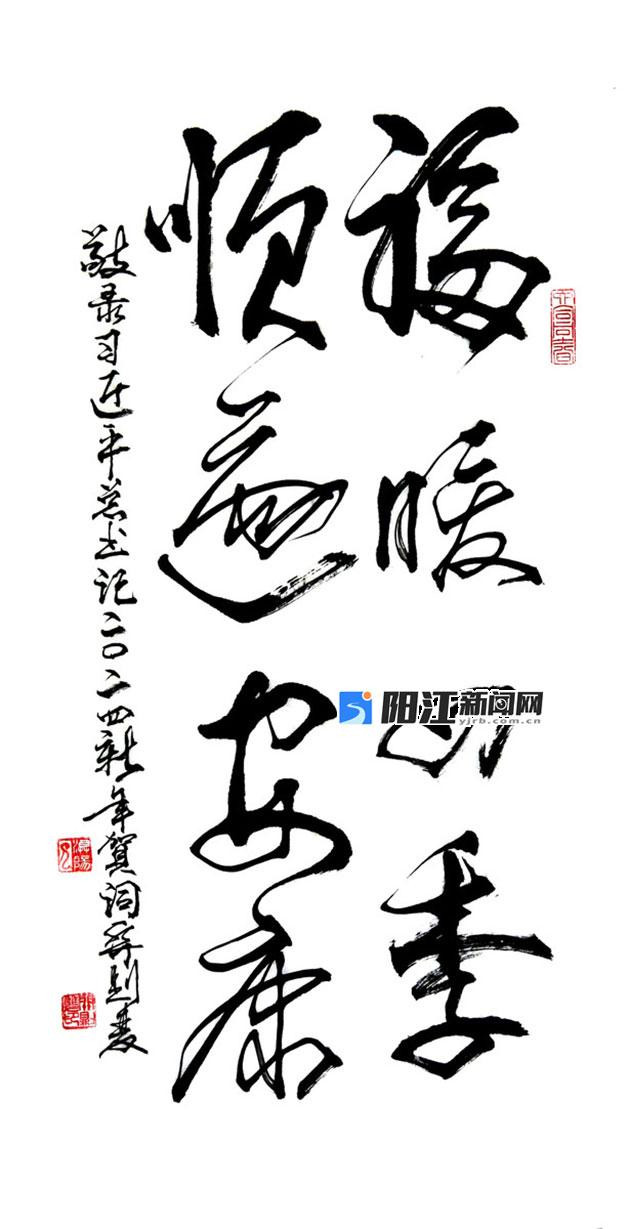 福暖四季
顺遂安康
敬录习近平总书记二〇二四新年贺词
阳江新闻网
yjrb.com.cn